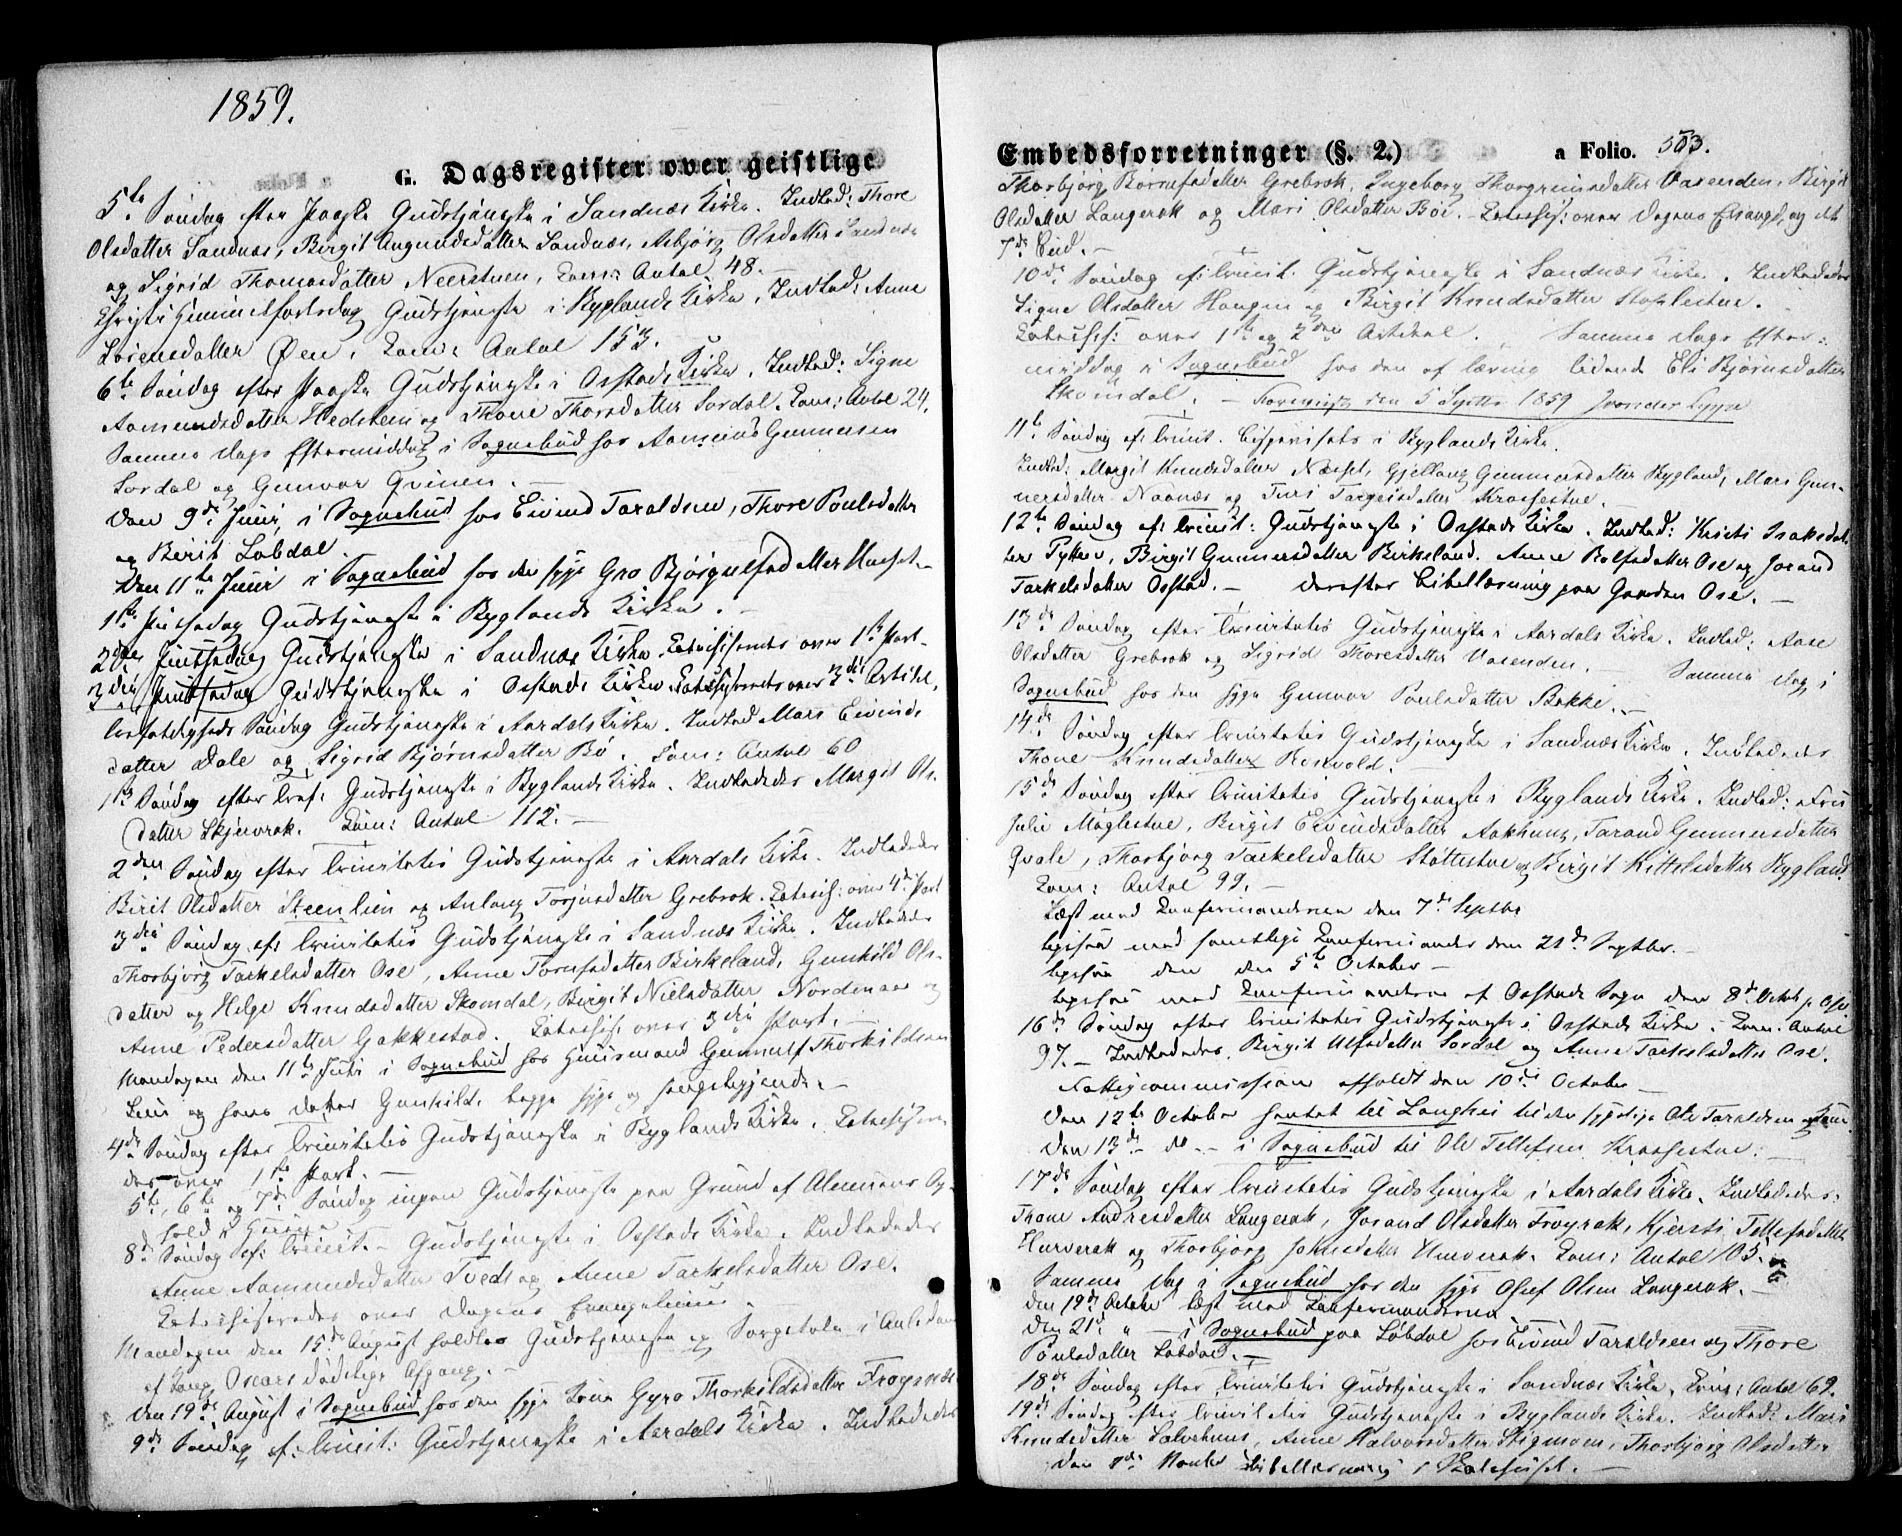 1859.
G. Dagsregister over geistlige
5te Søndag efter Paaske Gudstjeneste i Sandnæs Kirke. Indled: Thore
Olsdatter Sandnæs, Birgit Augundsdatter Sandnæs, Asbjørg Olsdatter Sandnæs
og Sigrid Thomasdatter Neerstuen, Com: Antal 48.
Christi Himmelfartsdag Gudstjeneste i Byglands Kirke. Indled: Anne
Lorensdatter Øen. Com: Antal 153.
6te Søndag efter Paaske Gudstjeneste i Osstads Kirke. Indled: Signe
Aamundsdatter Hedstem og Thone Thorsdatter Sordal. Com: Antal 24.
Samme Dags Eftermiddag i Sognebud hos Aamund Gunnersen
Sordal og Gunvor Qvinen.
Den 9de Juni, i Sognebud hos Eivind Taraldsen, Thore Poulsdatter
og Berit Løbdal.
Den 11te Juni i Sognebud hos den syge Gro Bjørgulfsdatter
1ste Pintsedag Gudstjeneste i Byglands Kirke.
2den Pintsedag Gudstjeneste i Sandnæs Kirke. Catechiserets over 1ste Part.
3die Pintsedag Gudstjeneste i Osstads Kirke. Catechiserets over 3die Artikel.
Trefoldigheds Søndag Gudstjeneste i Aardals Kirke. Indled Mari Eivinds
datter Dale og Sigrid Bjørnsdatter Bø. Com: Antal 60
1ste Søndag efter Tref: Gudstjeneste i Byglands Kirke. Indlededes Margit Ols
datter Skjævrak. Com: Antal 112.
2den Søndag efter Trinitatis Gudstjeneste i Aardals Kirke. Indlededes
Birit Olsdatter Steenlien og Anlaug Torjusdatter Grebrok. Catechis: over 4de Part
3die Søndag ef: Trinitatis Gudstjeneste i Sandnæs Kirke. Indlededes
Thorbjørg Tarkelsdatter Ose, Anne Tornfsdatter Birkeland, Gunhild Ols-
datter og Helge Knudsdatter Skomdal, Birgit Nielsdatter Nordenaa og
Anne Pedersdatter Gakkestad. Catechis: over 3die Part.
Mandagen den 11te Juli i Sognebud hos Huusmand Gunnulf Thorkildsen
Lien og hans datter Gunhild, begge syge og sengeliggende.
4de Søndag efter Trinitatis Gudstjeneste i Byglands Kirke. Catechisere-
des over 1ste Part.
5te, 6te og 7de Søndag ingen Gudstjeneste paa Grund af Almuens Op-
hold i Heiene
8de Søndag ef: Trinit. Gudstjeneste i Osstads Kirke. Indlededes
Anne Aamundsdatter Tvedt og Anne Tarkelsdatter Ose.
Catechiseredes over Dagens Evangelium.
Mandagen den 15de August holdtes Gudstjeneste og Sørgetale i Anledning
af Kong Oscars dødelige Afgang.
Den 19de August i Sognebud hos den syge Kone Gyro Thorkildsdatter Frøysnæs
9de Søndag ef: Trinit: Gudstjeneste i Aardals Kirke. Indlededes
Embedsforretninger (§. 2.) a Folio. 503.
Thorbjørg Børnefsdatter Grebrok, Ingeborg Thorgrimsdatter Vasenden, Birgit
Olsdatter Langerak og Mari Olsdatter Bøe. Catechis: over Dagens Evangel. og det
7de Bud.
10de Søndag ef: Trinit. Gudstjeneste i Sandnæs Kirke. Indlededes
Signe Olsdatter Haugen og Birgit Knudsdatter Stoplestue.
Catechis: over 1ste og 2den Artikel. Samme Dags Efter-
middag i Sognebud hos den af lidende Eli Bjørnsdatter
Skomdal. den 5 Septbr 1859
11te Søndag ef: Trinit. Bispevisitats i Byglands Kirke.
Indled: Margit Knudsdatter Næset, Gjellaug Gunnersdatter Bygland, Mari Gun-
nersdatter Naanæs og Turi Targeisdatter Kraagestue.
12te Søndag ef: Trinit: Gudstjeneste i Osstads Kirke. Indled: Kristi Isaksdat-
ter Birgit Gunnersdatter Birkeland. Anne Rolfsdatter Ose og Jorand
Tarkelsdatter Osstad. Derefter Bibellæsning paa Gaarden Ose.
13de Søndag efter Trinitatis Gudstjeneste i Aardals Kirke. Indled: Aase
Olsdatter Grebrok og Sigrid Thoresdatter Vasenden. Samme Dag i
Sognebud hos den syge Gunvor Poulsdatter Bakke.
14de Søndag efter Trinitatis Gudstjeneste i Sandnæs Kirke. Indlededes
Thone Knudsdatter Rosvold.
15de Søndag efter Trinitatis Gudstjeneste i Byglands Kirke. Indled: Fru
Julie Møglestue, Birgit Eivindsdatter Aakhuus, Tarand Gunnersdatter
Qvale, Thorbjørg Tarkelsdatter Støttestue og Birgit Kittelsdatter Bygland.
Com: Antal 99.
Læst med Confirmanderne den 7de Septbr
ligesaa med samtlige Confirmander den 21de Septbr.
ligesaa den 5te October
ligesaa med Confirmanderne af Osstads Sogn den 8de Octob. p. Ose
16de Søndag efter Trinitatis Gudstjeneste i Osstads Kirke. Com. Antal
97. Indlededes Birgit Ulfsdatter Sordal og Anne Tarkelsdatter Ose.
Fattigcommission afholdt den 10de October
Den 12te October hentet til Langhei til den sygelige Ole Taraldsen og Kone.
Den 13de do i Sognebud til Ole Tellefsen Kraagestue.
17de Søndag efter Trinitatis Gudstjeneste i Aardals Kirke. Indlededes:
Thone Andresdatter Langerak, Jorand Olsdatter Frøyrak, Kjersti Tellefsdatter
Hurverak og Thorbjørg Johnsdatter Hurverak. Com: Antal 103.
Samme Dag i Sognebud hos den syge Olef Olsen Langerak.
Den 19de October læst med Confirmanderne
Den 21de " i Sognebud paa Løbdal hos Eivind Taraldsen og Thore
Poulsdatter Løbdal.
18de Søndag efter Trinitatis Gudstjeneste i Sandnæs Kirke. Com: Antal 69.
19de Søndag efter Trinitatis Gudstjeneste i Byglands Kirke. Indled: Mari
Knudsdatter Salvehuus, Anne Halvorsdatter Stigmoen, Thorbjørg Olsdatter
Den 1de Novbr Bibellæsning i